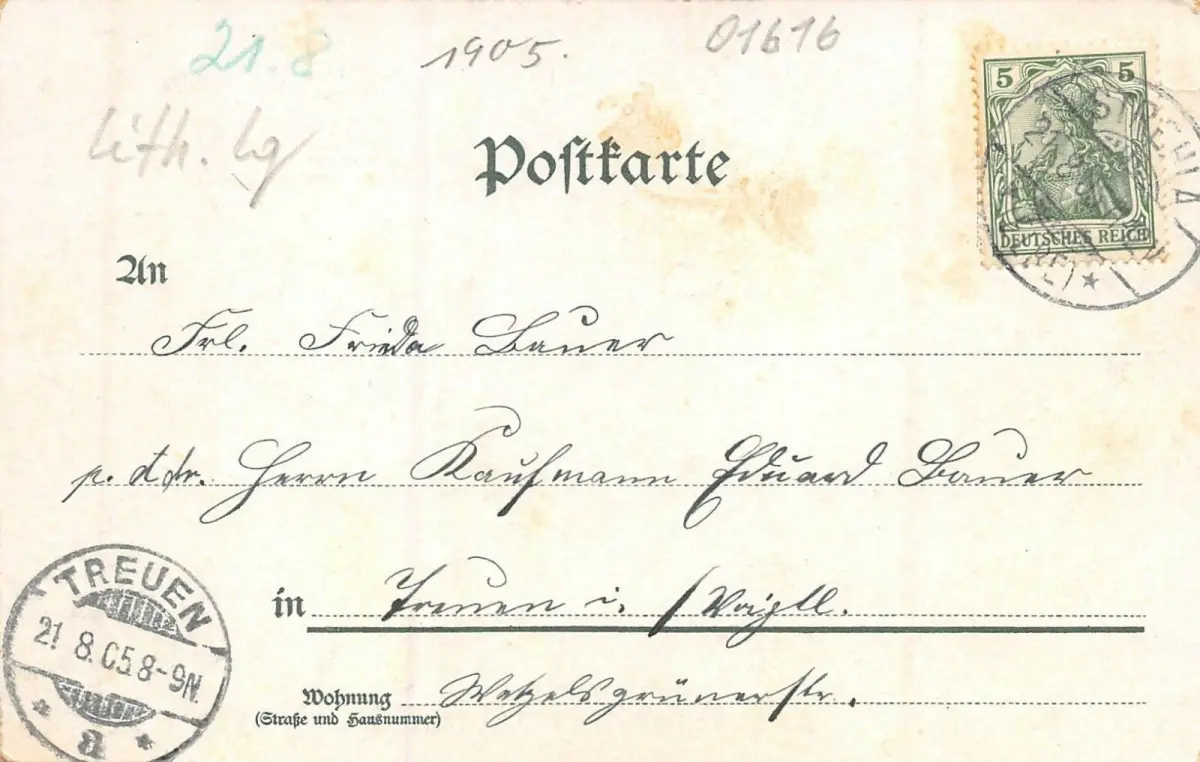 21.8 1905. 01616
lith. lg
5 5
DEUTSCHES REICH
Postkarte
An
Frl. Frieda Bauer
p. Adr. Herrn Kaufmann Eduard Bauer
in Treuen i./Voigtl.
Wohnung Wetzelsgrünerstr.
(Straße und Hausnummer)
TREUEN
21 8.05.8-9N.
a